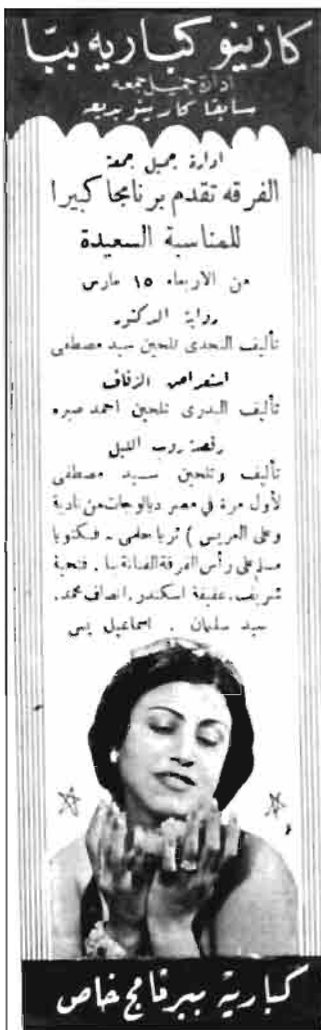 كازينو كباريه ببّا
ادارة جميل جمعه
سابقا كازينو بديعه
ادارة جميل جمعة
الفرقه تقدم برنامجا كبيرا
للمناسبة السعيدة
من الاربعاء ١٥ مارس
رواية الدكتور
تأليف البحدى تلحين سيد مصطفى
استعراض الزفاف
تأليف البدرى تلحين احمد صبره
رقصة روب الليل
تأليف وتلحين سيد مصطفى
لأول مرة في مصر ديالوجات من نادية
وعلى العريس ) ثريا حلمى - فيكتوريا
على رأس الفرقة الفنانة ببا . فتحية
شريف . عقيلة اسكندر . انصاف محمد .
سيد سليمان . اسماعيل يس
كباريه ببرنامج خاص